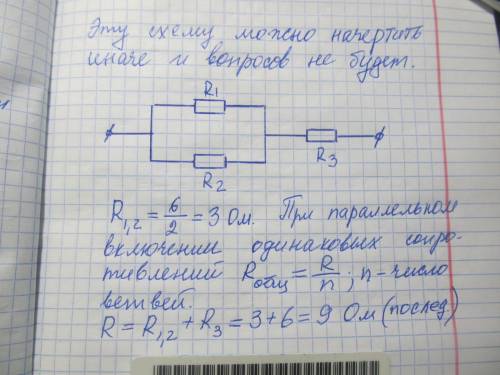 Эту схему можно начертить
иначе и вопросов не будет.
R1
R3
R2
R1,2 = 6/2 = 3 Ом. При параллельном
включении одинаковых сопро-
тивлений Rобщ = R/n ; n - число
ветвей.
R = R1,2 + R3 = 3 + 6 = 9 Ом (послед.)